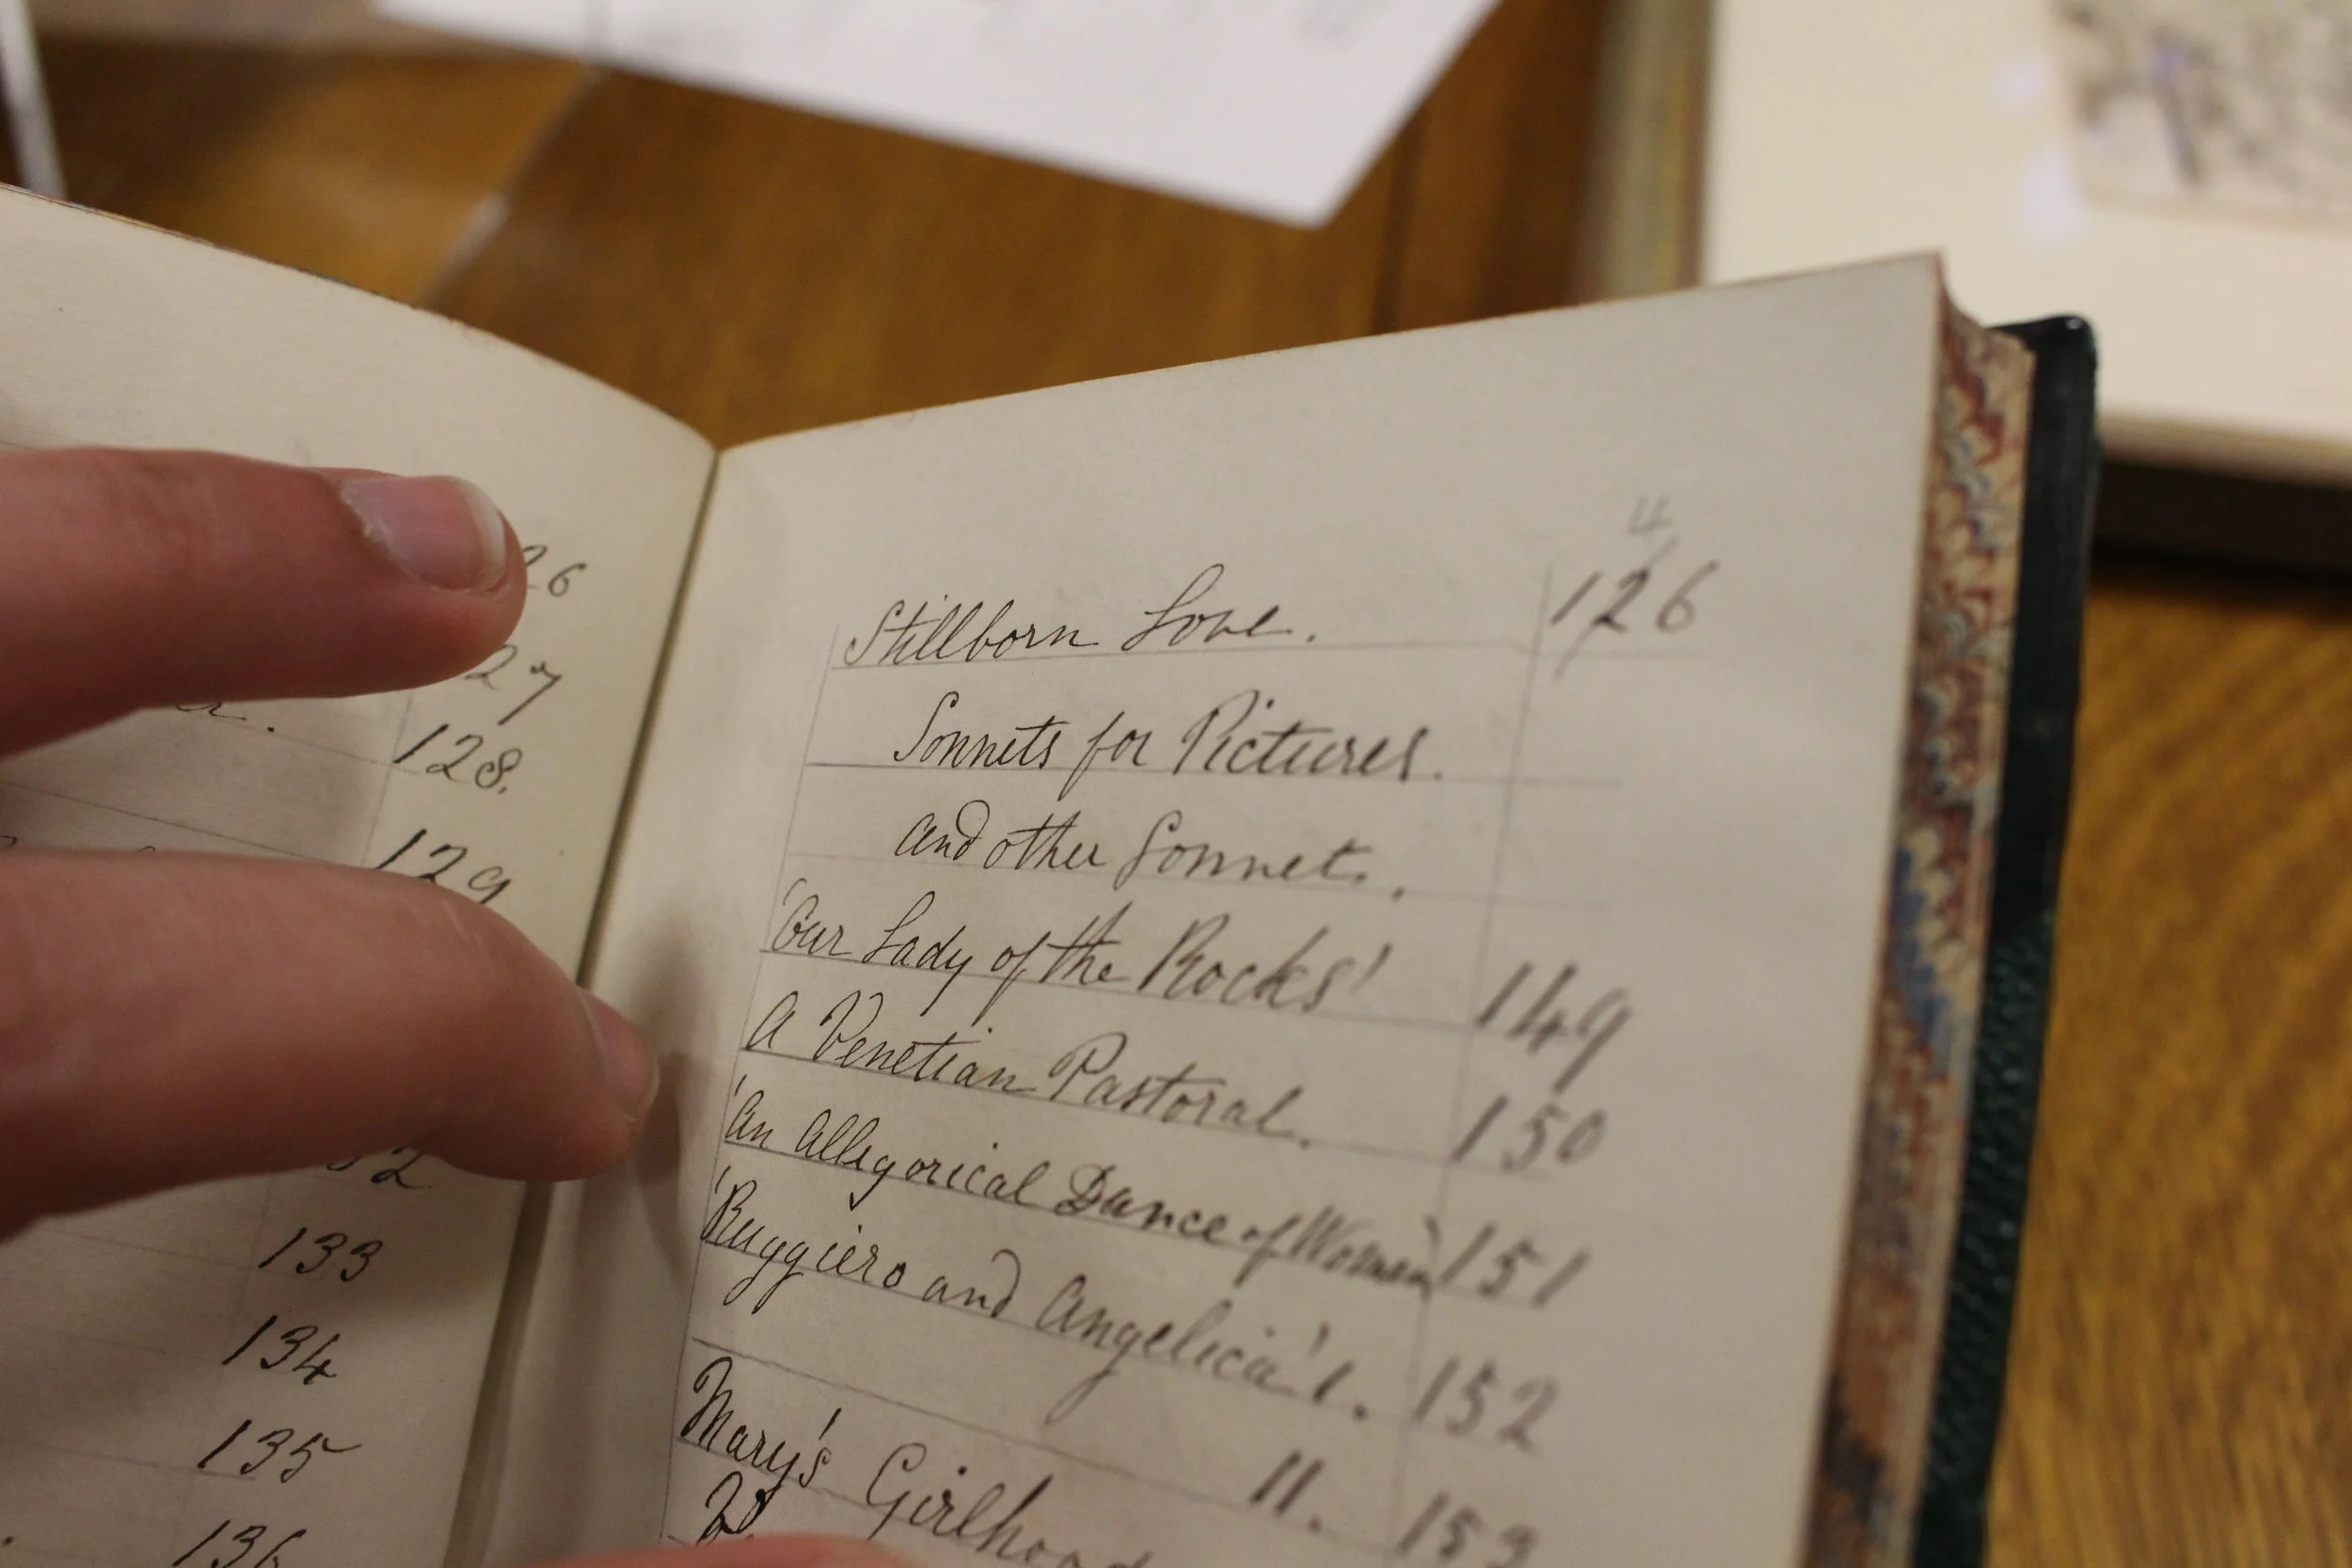 26
27
128.
129
32
133
134
135
136
4
Stillborn Love. 126
Sonnets for Pictures.
and other Sonnets.
'Our Lady of the Rocks' 149
A Venetian Pastoral. 150
'An Allegorical Dance of Women' 151
'Ruggiero and Angelica' 1. 152
11. 153
Mary's Girlhood